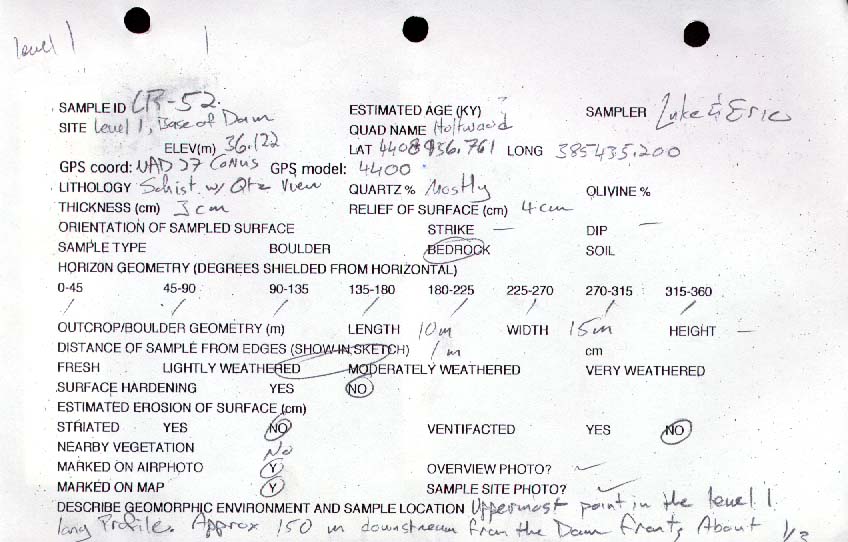 level 1
SAMPLE ID LR-52 ESTIMATED AGE (KY) SAMPLER Luke & Eric
SITE level 1, Base of Dam QUAD NAME Holtwood
ELEV(m) 36.122 LAT 4408936.761 LONG 385435.200
GPS coord: NAD 27 CONUS GPS model: 4400
LITHOLOGY Schist w/ Qtz Vien QUARTZ % Mostly OLIVINE %
THICKNESS (cm) 3 cm RELIEF OF SURFACE (cm) 4 cm
ORIENTATION OF SAMPLED SURFACE STRIKE — DIP —
SAMPLE TYPE BOULDER BEDROCK SOIL
HORIZON GEOMETRY (DEGREES SHIELDED FROM HORIZONTAL)
0-45 45-90 90-135 135-180 180-225 225-270 270-315 315-360
/ / / / / / / /
OUTCROP/BOULDER GEOMETRY (m) LENGTH 10m WIDTH 15m HEIGHT —
DISTANCE OF SAMPLE FROM EDGES (SHOW IN SKETCH) 1 m cm
FRESH LIGHTLY WEATHERED MODERATELY WEATHERED VERY WEATHERED
SURFACE HARDENING YES NO
ESTIMATED EROSION OF SURFACE (cm)
STRIATED YES NO VENTIFACTED YES NO
NEARBY VEGETATION No
MARKED ON AIRPHOTO Y OVERVIEW PHOTO? ✓
MARKED ON MAP Y SAMPLE SITE PHOTO? ✓
DESCRIBE GEOMORPHIC ENVIRONMENT AND SAMPLE LOCATION Uppermost point in the level 1
long Profile. Approx 150 m downstream from the Dam front, About 1/3